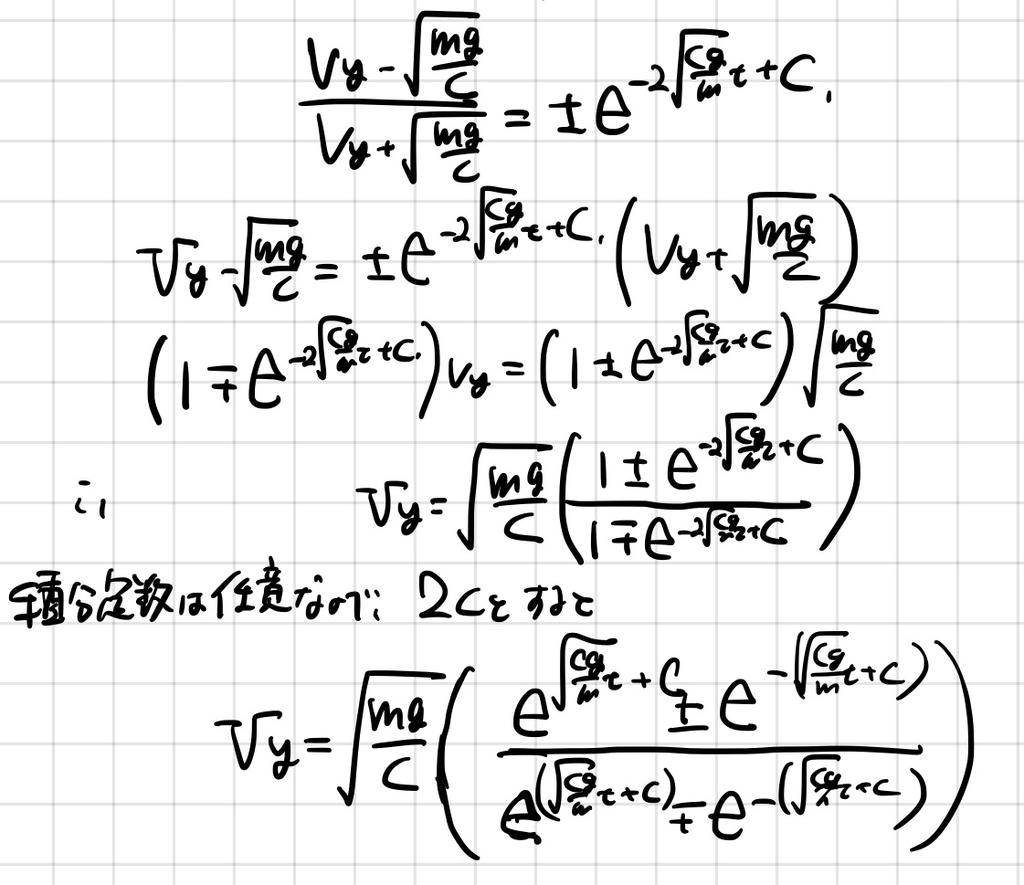 (Vy - √(mg/C)) / (Vy + √(mg/C)) = ± e^(-2√(Cg/m) t + C₁)
Vy - √(mg/C) = ± e^(-2√(Cg/m) t + C₁) (Vy + √(mg/C))
(1 ∓ e^(-2√(Cg/m) t + C₁)) Vy = (1 ± e^(-2√(Cg/m) t + C)) √(mg/C)
Vy = √(mg/C) ((1 ± e^(-2√(Cg/m) t + C)) / (1 ∓ e^(-2√(Cg/m) t + C)))
積分定数は任意なので; 2Cとすると
Vy = √(mg/C) ((e^(√(Cg/m) t + C) ± e^(-(√(Cg/m) t + C))) / (e^(√(Cg/m) t + C) ∓ e^(-(√(Cg/m) t + C))))